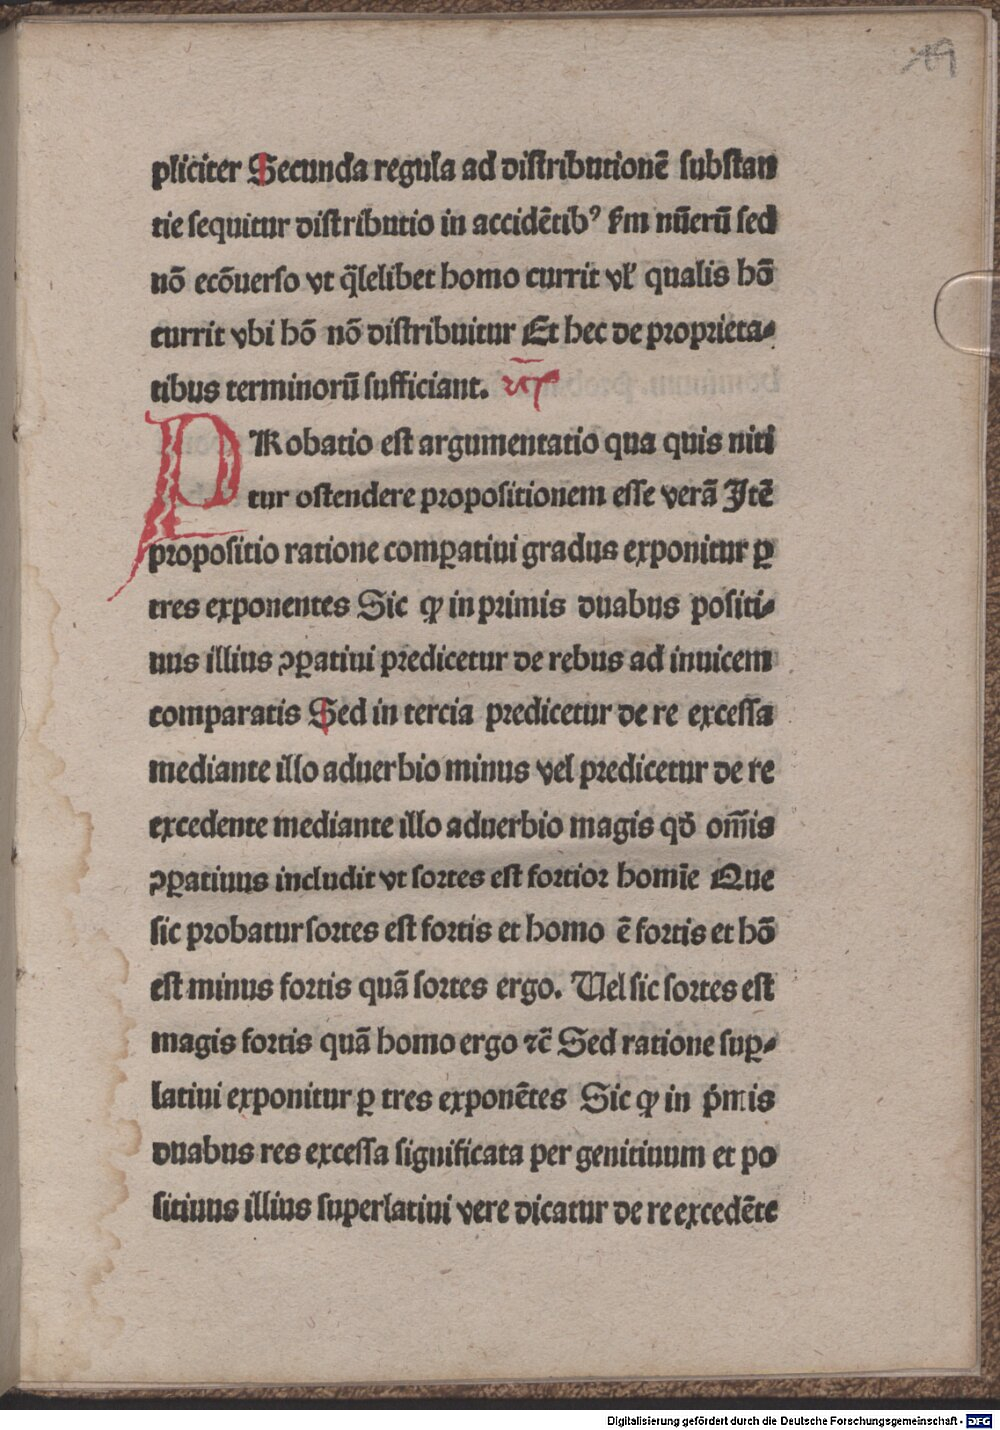 19
pliciter Secunda regula ad distributionē substan
tie sequitur distributio in accidētibꝰ ẜm nūerū sed
nō ecōuerso vt q̄lelibet homo currit vl̛ qualis hō
currit vbi hō nō distribuitur Et hec de proprieta⸗
tibus terminorū sufficiant.
PRobatio est argumentatio qua quis niti
tur ostendere propositionem esse verā Itē
propositio ratione comꝑatiui gradus exponitur ꝑ
tres exponentes Sic ꝙ in primis duabus positi⸗
uus illius ꝯꝑatiui predicetur de rebus ad inuicem
comparatis Sed in tercia predicetur de re excessa
mediante illo aduerbio minus vel predicetur de re
excedente mediante illo aduerbio magis qđ om̄is
ꝯꝑatiuus includit vt sortes est fortior homīe Que
sic probatur sortes est fortis et homo ē fortis et hō
est minus fortis quā sortes ergo. Uel sic sortes est
magis fortis quā homo ergo ⁊c̄ Sed ratione suꝑ⸗
latiui exponitur ꝑ tres exponētes Sic ꝙ in p̄mis
duabus res excessa significata per genitiuum et po
sitiuus illius superlatiui vere dicatur de re excedēte
Digitalisierung gefördert durch die Deutsche Forschungsgemeinschaft - DFG